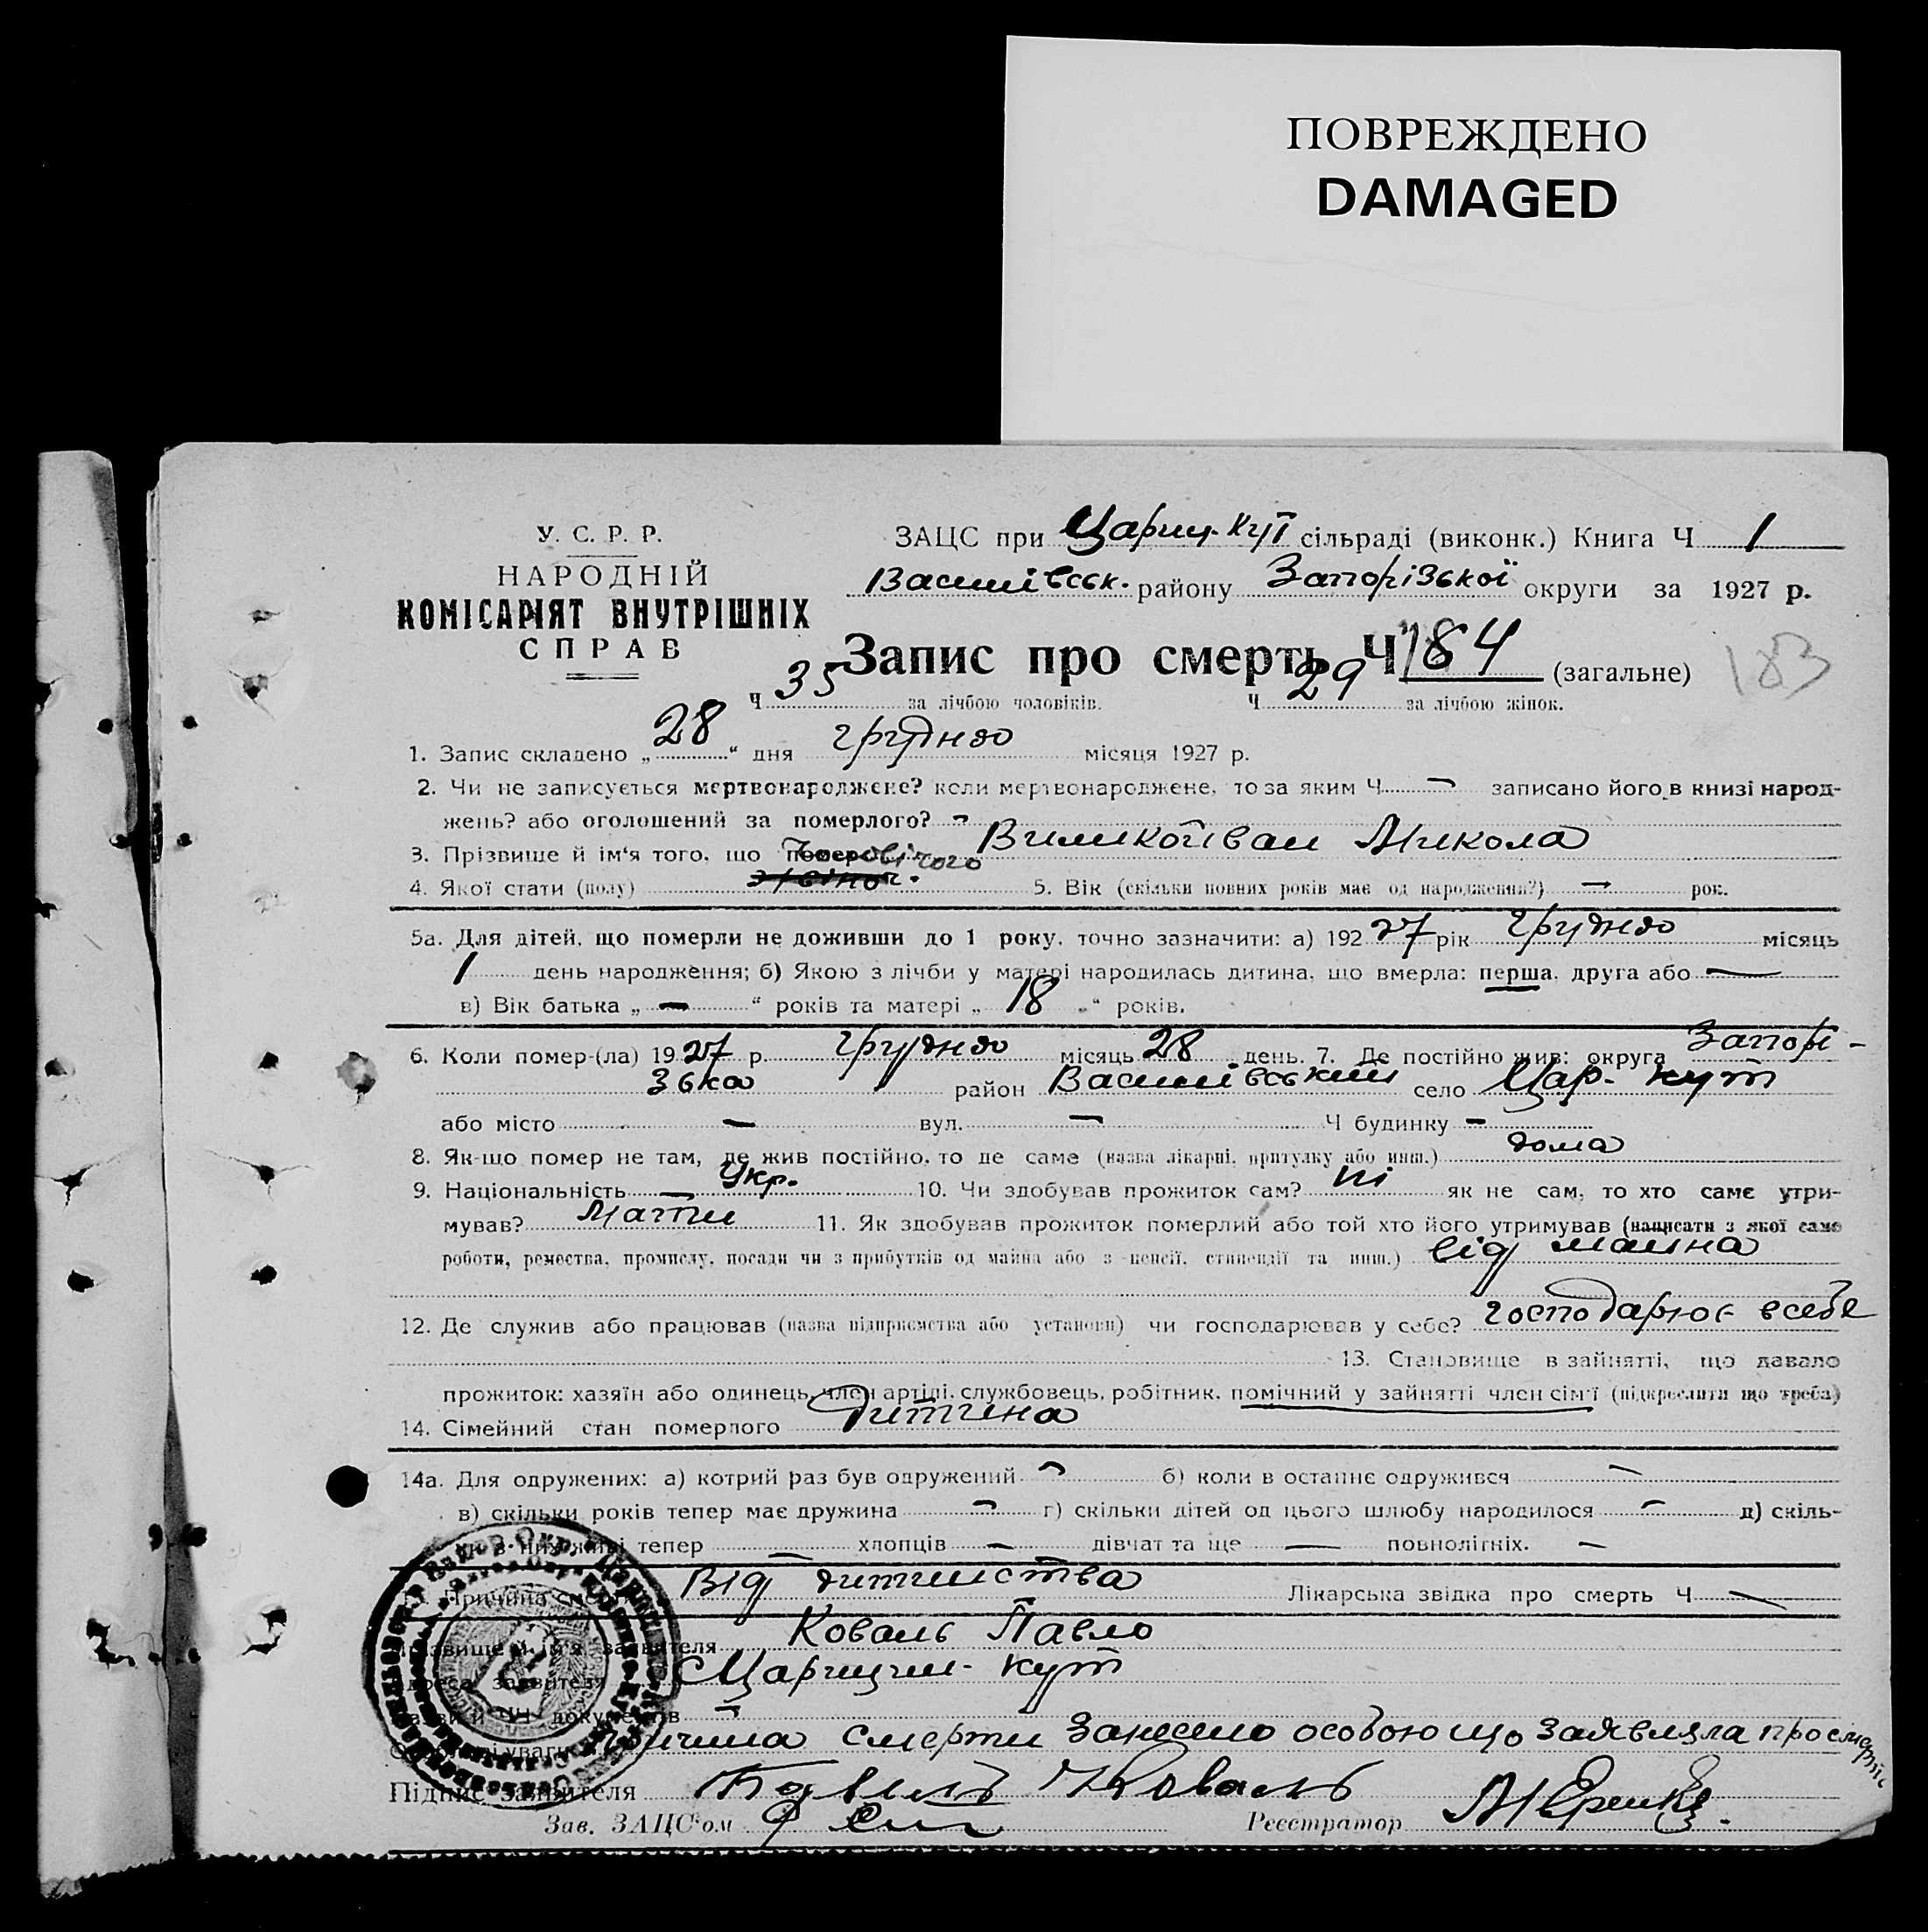 ПОВРЕЖДЕНО
DAMAGED
У. С. Р. Р.
НАРОДНІЙ
КОМІСАРІЯТ ВНУТРІШНІХ
СПРАВ
ЗАЦС при Цариц-Кут сільраді (виконк.) Книга Ч 1
Василівськ. району Запорізької округи за 1927 р.
Запис про смерть Ч 184 (загальне) 183
Ч 35 за лічбою чоловіків. Ч 29 за лічбою жінок.
1. Запис складено „28“ дня грудня місяця 1927 р.
2. Чи не записується мертвонароджене? коли мертвонароджене, то за яким Ч — записано його в книзі народ-
жень? або оголошений за померлого? —
3. Прізвище й ім'я того, що помер Микола
4. Якої стати (полу) чоловічого 5. Вік (скільки повних років має од народження?) — рок.
5а. Для дітей, що померли не доживши до 1 року, точно зазначити: а) 1927 рік грудня місяць
1 день народження; б) Якою з лічби у матері народилась дитина, що вмерла: перша, друга або —
в) Вік батька „—“ років та матері „18“ років.
6. Коли помер-(ла) 1927 р. грудня місяць 28 день. 7. Де постійно жив: округа Запорі-
зька район Василівський село Цар-Кут
або місто — вул. — Ч будинку —
8. Як-що помер не там, де жив постійно, то де саме (назва лікарні, притулку або инш.) дома
9. Національність — Укр. 10. Чи здобував прожиток сам? ні як не сам, то хто саме утри-
мував? Мати 11. Як здобував прожиток померлий або той хто його утримував (написати з якої саме
роботи, ремества, промислу, посади чи з прибутків од майна або з пенсії, стипендії та инш.) від майна
12. Де служив або працював (назва підприємства або установи) чи господарював у себе? господарює в себе
13. Становище в зайнятті, що давало
прожиток: хазяїн або одинець, член артілі, службовець, робітник, помічний у зайнятті член сім'ї (підкреслити що треба)
14. Сімейний стан померлого Дитина
14а. Для одружених: а) котрий раз був одружений — б) коли в останнє одружився —
в) скільки років тепер має дружина — г) скільки дітей од цього шлюбу народилося — д) скіль-
ки з них живі тепер — хлопців — дівчат та ще — повнолітніх. —
Причина смерти Від дитинства Лікарська звідка про смерть Ч —
Прізвище й ім'я заявителя Коваль Павло
Адреса заявителя Царицин-Кут
документів —
уваги Причина смерти занесено особою що заявляла про смерть
Підпис заявителя Павло Коваль
Зав. ЗАЦС'ом Реєстратор